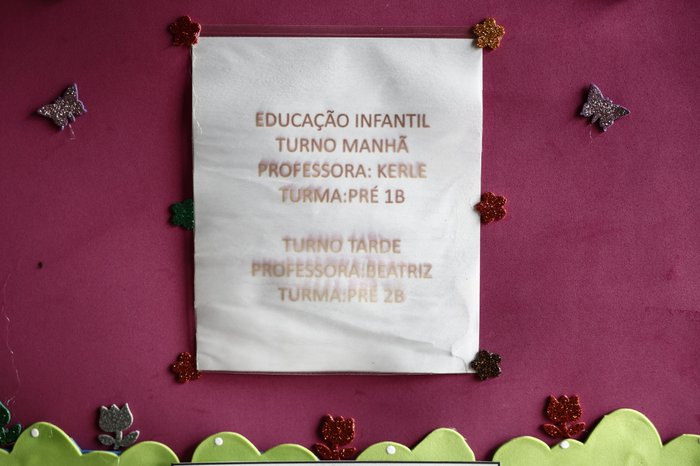 EDUCAÇÃO INFANTIL
TURNO MANHÃ
PROFESSORA: KERLE
TURMA:PRÉ 1B
TURNO TARDE
PROFESSORA:BEATRIZ
TURMA:PRÉ 2B